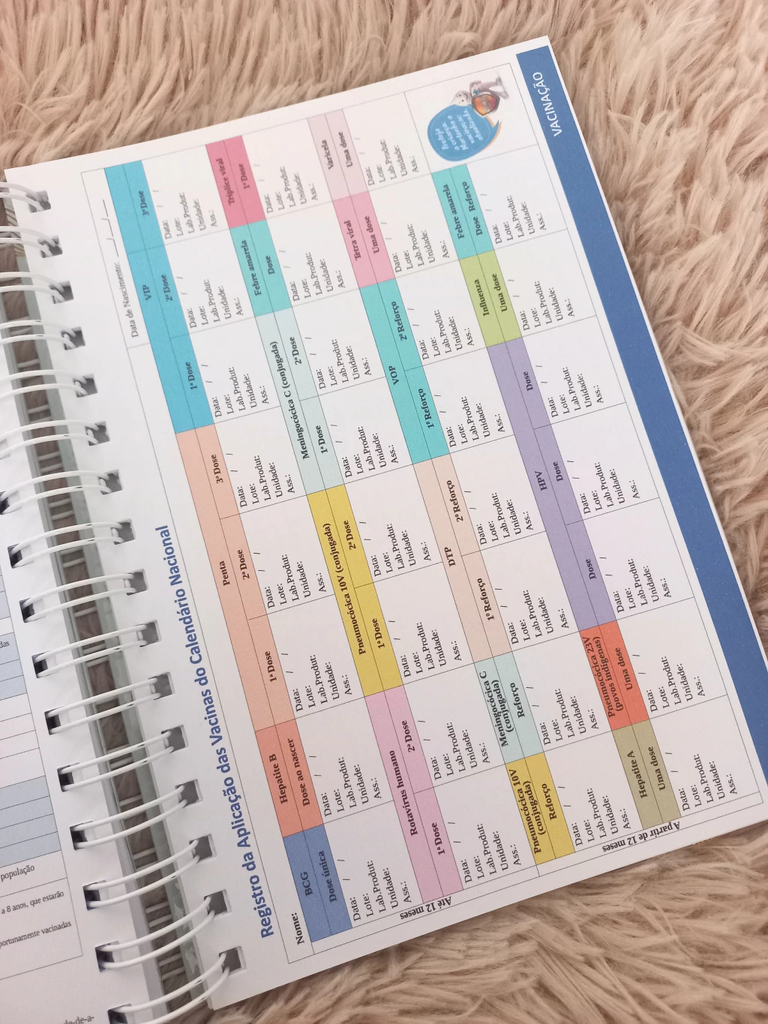 das
população
a 8 anos, que estarão
portunamente vacinadas
Registro da Aplicação das Vacinas do Calendário Nacional
Nome: Data de Nascimento: __/__/__
Até 12 meses
BCG Hepatite B Penta VIP
Dose única Dose ao nascer 1ª Dose 2ª Dose 3ª Dose 1ª Dose 2ª Dose 3ª Dose
Data: / / Data: / / Data: / / Data: / / Data: / / Data: / / Data: / / Data: / /
Lote: Lote: Lote: Lote: Lote: Lote: Lote: Lote:
Lab.Produt: Lab.Produt: Lab.Produt: Lab.Produt: Lab.Produt: Lab.Produt: Lab.Produt: Lab.Produt:
Unidade: Unidade: Unidade: Unidade: Unidade: Unidade: Unidade: Unidade:
Ass.: Ass.: Ass.: Ass.: Ass.: Ass.: Ass.: Ass.:
Rotavírus humano Pneumocócica 10V (conjugada) Meningocócica C (conjugada) Febre amarela Tríplice viral
1ª Dose 2ª Dose 1ª Dose 2ª Dose 1ª Dose 2ª Dose Dose 1ª Dose
Data: / / Data: / / Data: / / Data: / / Data: / / Data: / / Data: / / Data: / /
Lote: Lote: Lote: Lote: Lote: Lote: Lote: Lote:
Lab.Produt: Lab.Produt: Lab.Produt: Lab.Produt: Lab.Produt: Lab.Produt: Lab.Produt: Lab.Produt:
Unidade: Unidade: Unidade: Unidade: Unidade: Unidade: Unidade: Unidade:
Ass.: Ass.: Ass.: Ass.: Ass.: Ass.: Ass.: Ass.:
A partir de 12 meses
Pneumocócica 10V (conjugada) Meningocócica C (conjugada) DTP VOP Tetra viral Varicela
Reforço Reforço 1º Reforço 2º Reforço 1º Reforço 2º Reforço Uma dose Uma dose
Data: / / Data: / / Data: / / Data: / / Data: / / Data: / / Data: / / Data: / /
Lote: Lote: Lote: Lote: Lote: Lote: Lote: Lote:
Lab.Produt: Lab.Produt: Lab.Produt: Lab.Produt: Lab.Produt: Lab.Produt: Lab.Produt: Lab.Produt:
Unidade: Unidade: Unidade: Unidade: Unidade: Unidade: Unidade: Unidade:
Ass.: Ass.: Ass.: Ass.: Ass.: Ass.: Ass.: Ass.:
Hepatite A Pneumocócica 23V (povos indígenas) HPV Influenza Febre amarela
Uma dose Uma dose Dose Dose Dose Uma dose Dose Reforço
Data: / / Data: / / Data: / / Data: / / Data: / / Data: / / Data: / /
Lote: Lote: Lote: Lote: Lote: Lote: Lote:
Lab.Produt: Lab.Produt: Lab.Produt: Lab.Produt: Lab.Produt: Lab.Produt: Lab.Produt:
Unidade: Unidade: Unidade: Unidade: Unidade: Unidade: Unidade:
Ass.: Ass.: Ass.: Ass.: Ass.: Ass.: Ass.:
VACINAÇÃO